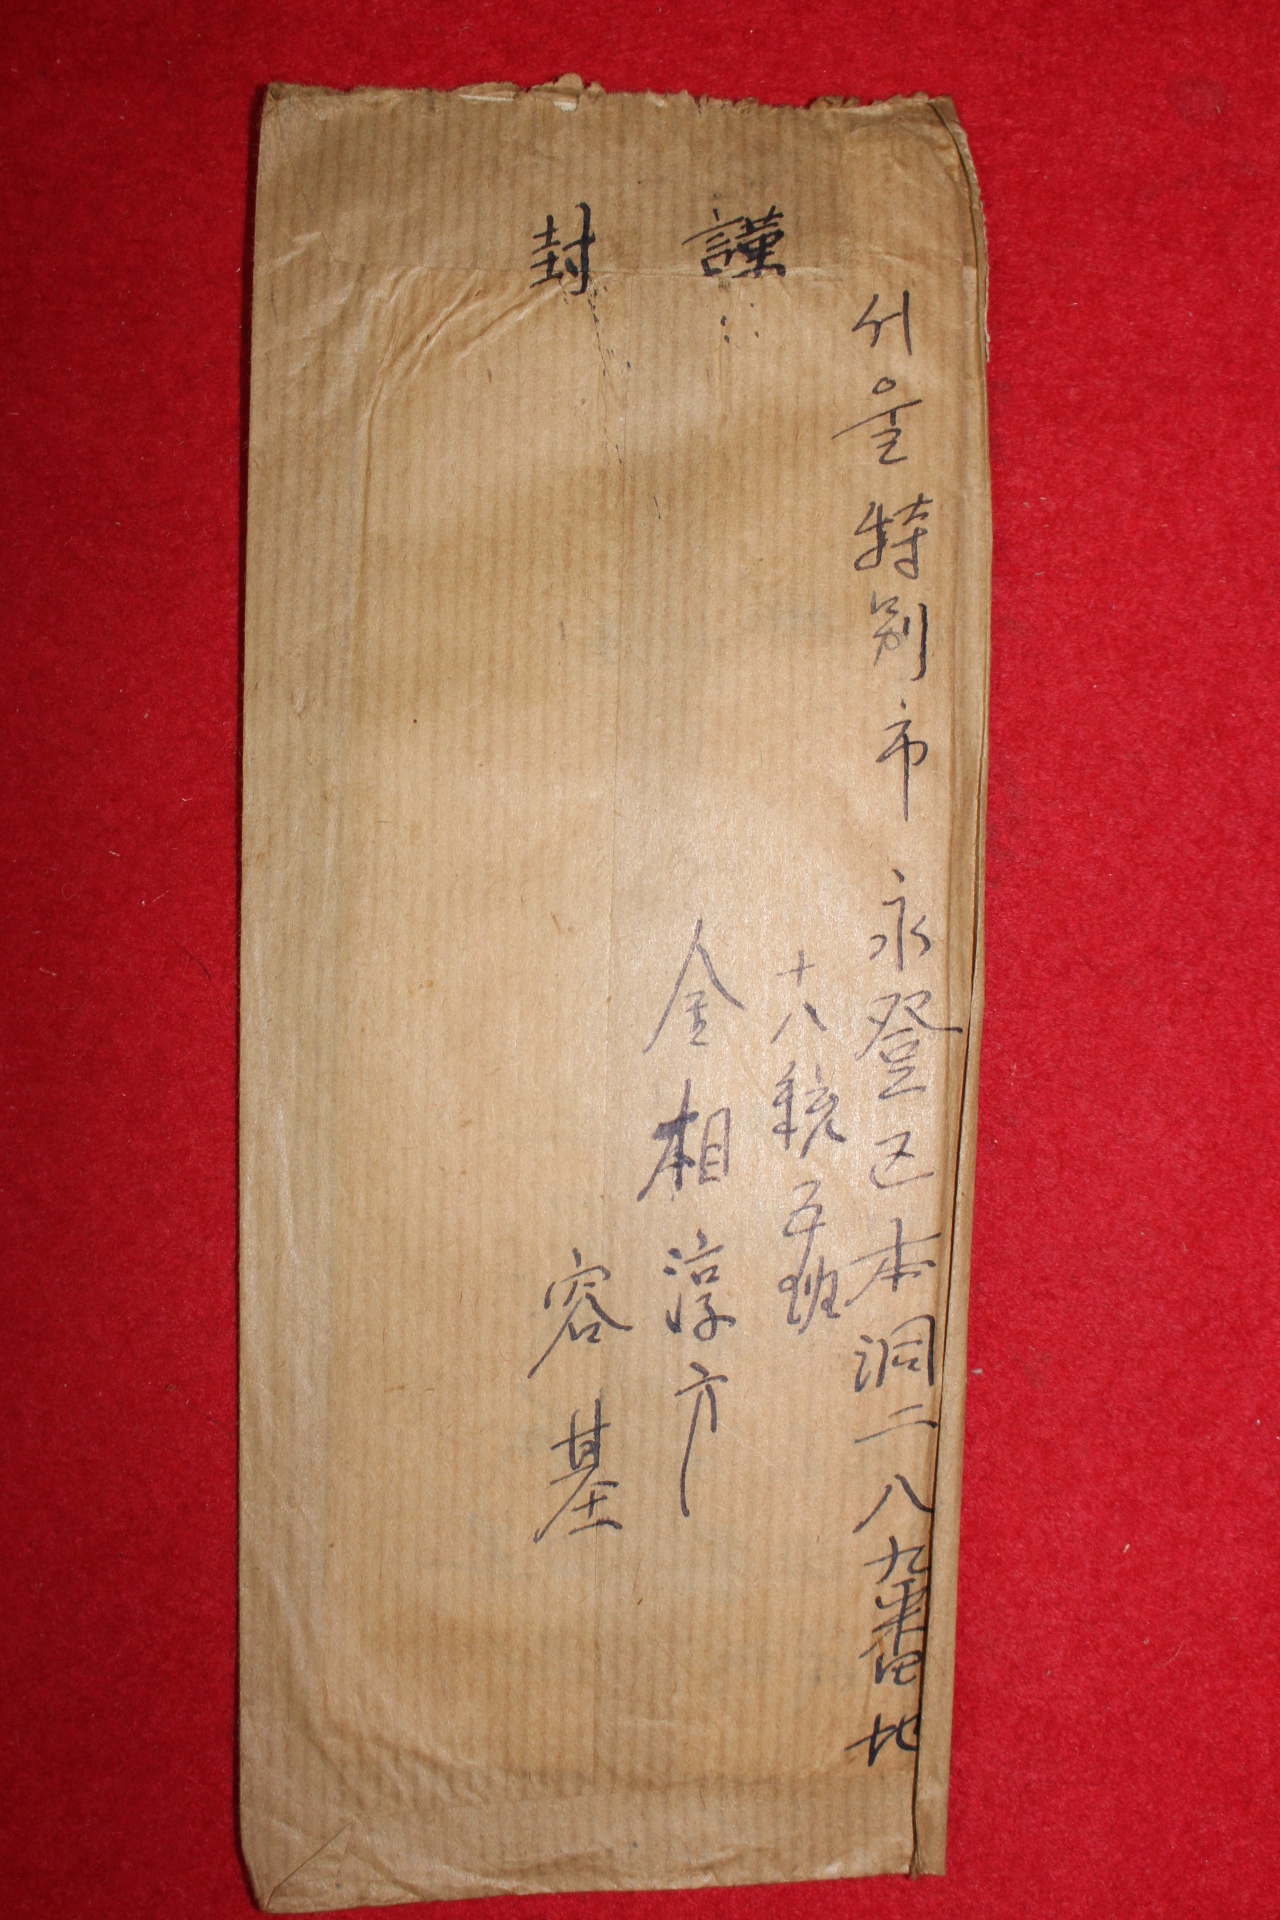 謹封
서울特別市 永登区本洞二八九番地
十八統五班
金相淳方
容基